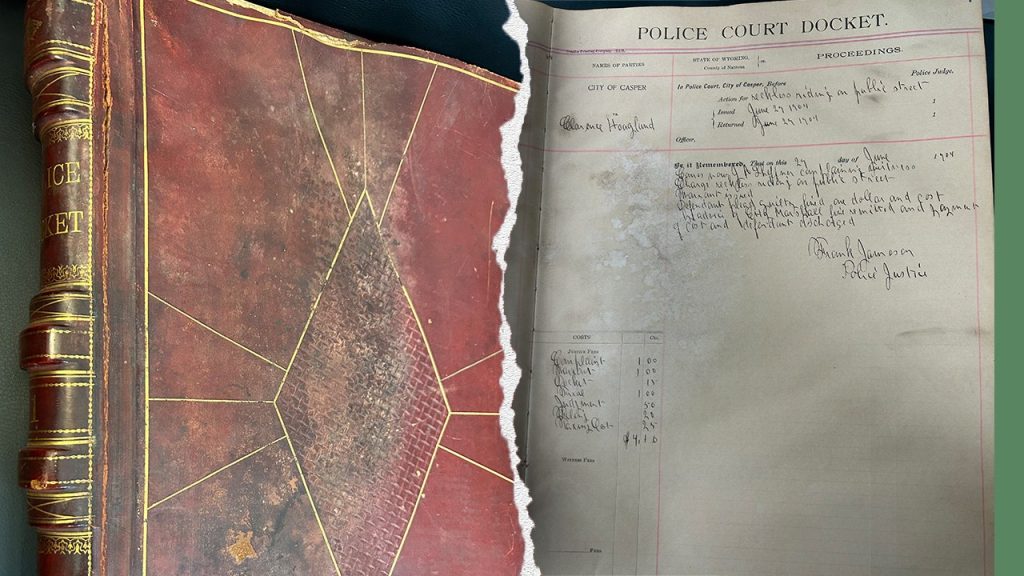 ICE
KET
1
POLICE COURT DOCKET.
NAMES OF PARTIES
STATE OF WYOMING
County of Natrona
ss.
PROCEEDINGS.
Police Judge.
CITY OF CASPER
In Police Court, City of Casper, Before
Action for reckless riding on public street
Clarence Hoagland
Issued June 29 1904
Returned June 29 1904
Officer.
Be it Remembered, That on this 29 day of June 1904
Comes now complaining
Charge reckless riding on public street
Warrant issued
Defendant plead guilty fined one dollar and cost
Marshall fine remitted and payment
of cost and Defendant discharged
Frank Jameson
Police Justice
COSTS
Cts.
Justice Fees
Complaint 1 00
1 00
Docket 15
Trial 1 00
Judgment 50
Filing 20
25
$4.10
Witness Fees
Fees